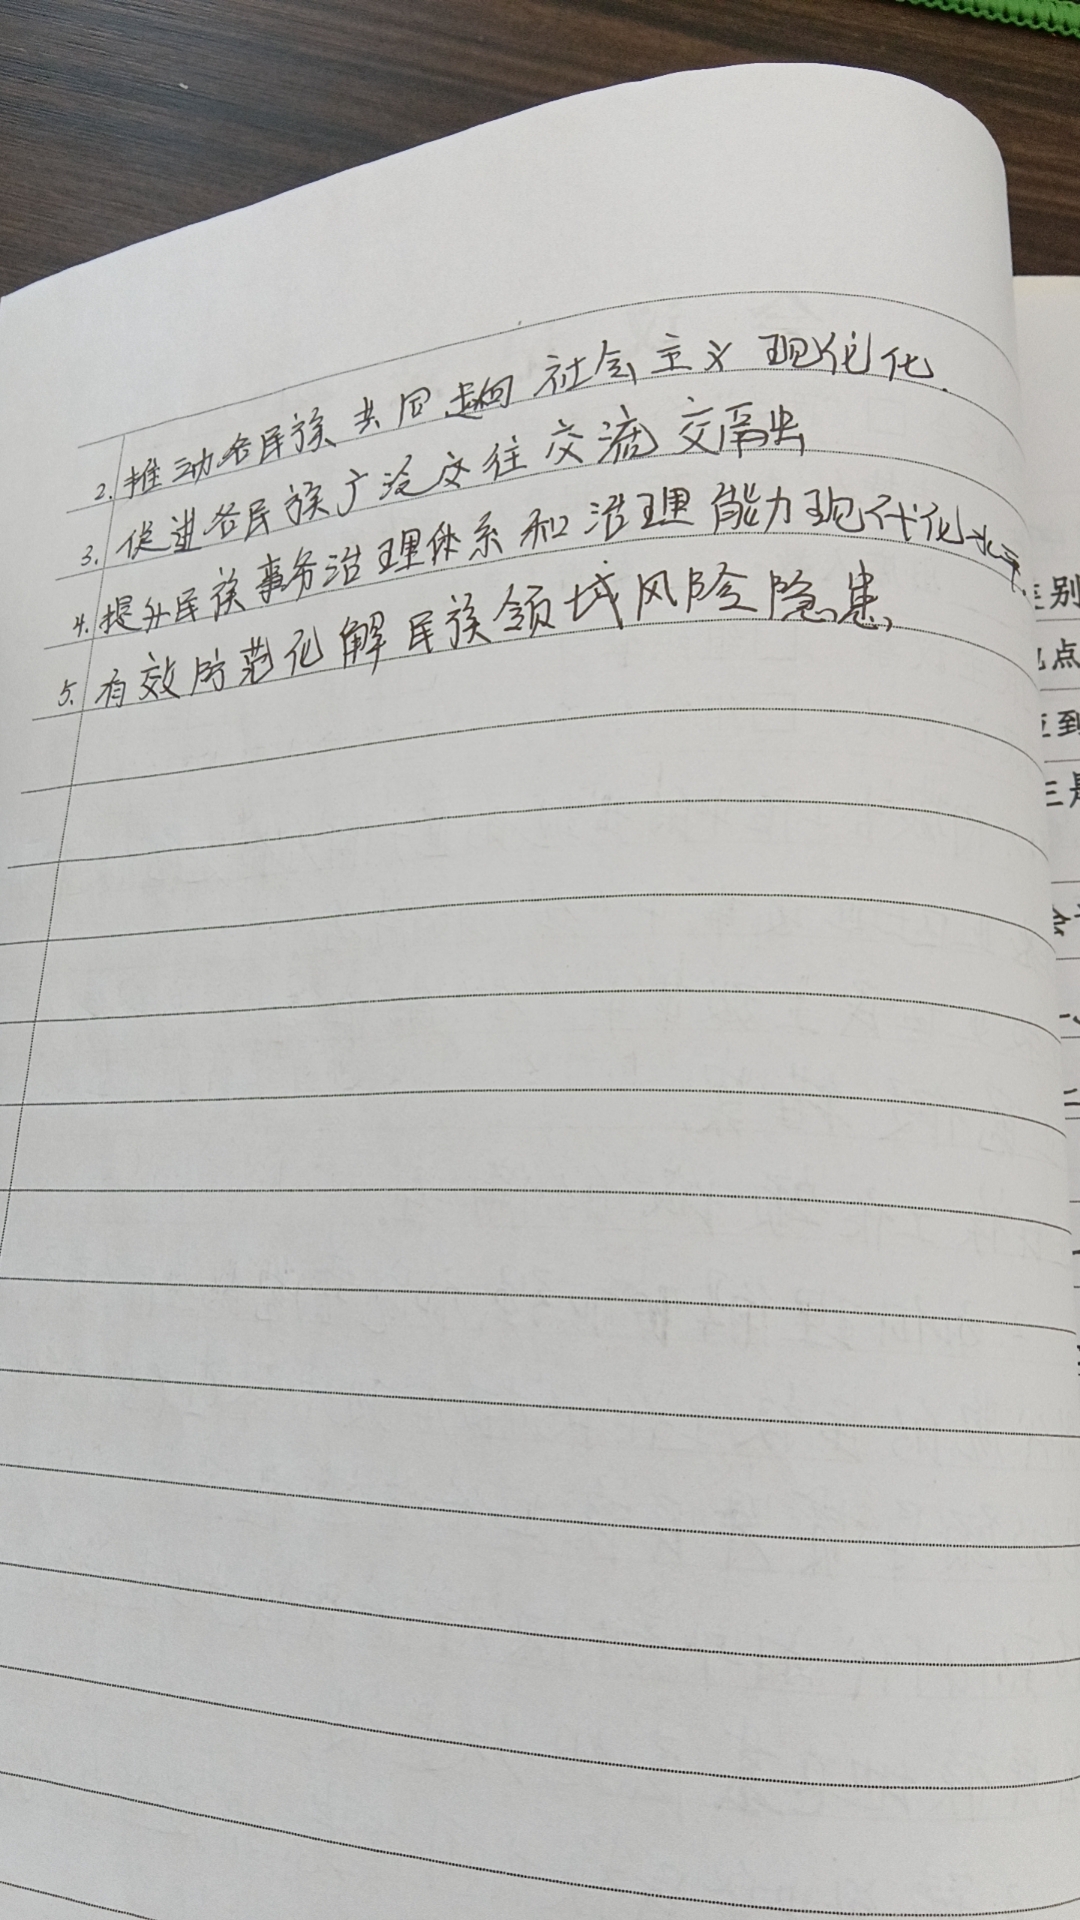 2. 推动各民族共同走向社会主义现代化.
3. 促进各民族广泛交往交流交融
4. 提升民族事务治理体系和治理能力现代化水平.
5. 有效防范化解民族领域风险隐患
别
点
到
三是